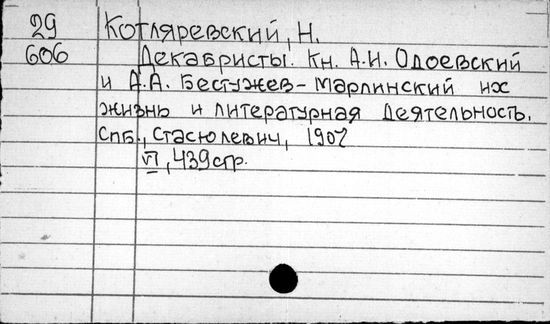 29 Котляревский, Н.
606 Декабристы. Кн. А.И. Одоевский
и А.А. Бестужев-Марлинский их
жизнь и литературная деятельность.
Спб., Стасюлевич, 1907
VI, 439 стр.